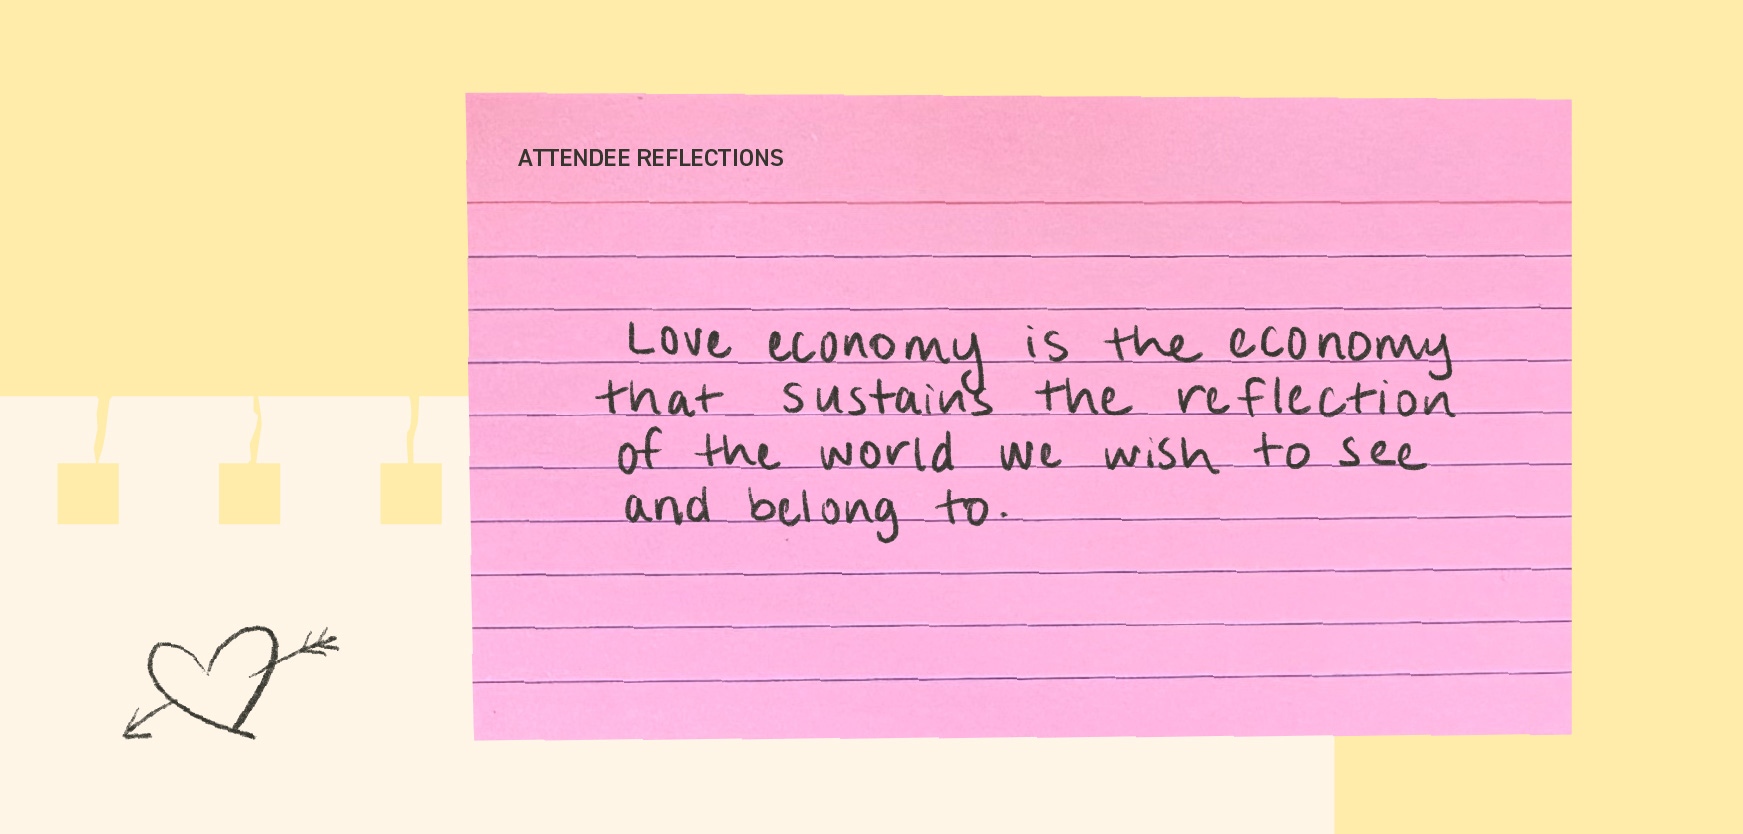 ATTENDEE REFLECTIONS
Love economy is the economy
that sustains the reflection
of the world we wish to see
and belong to.